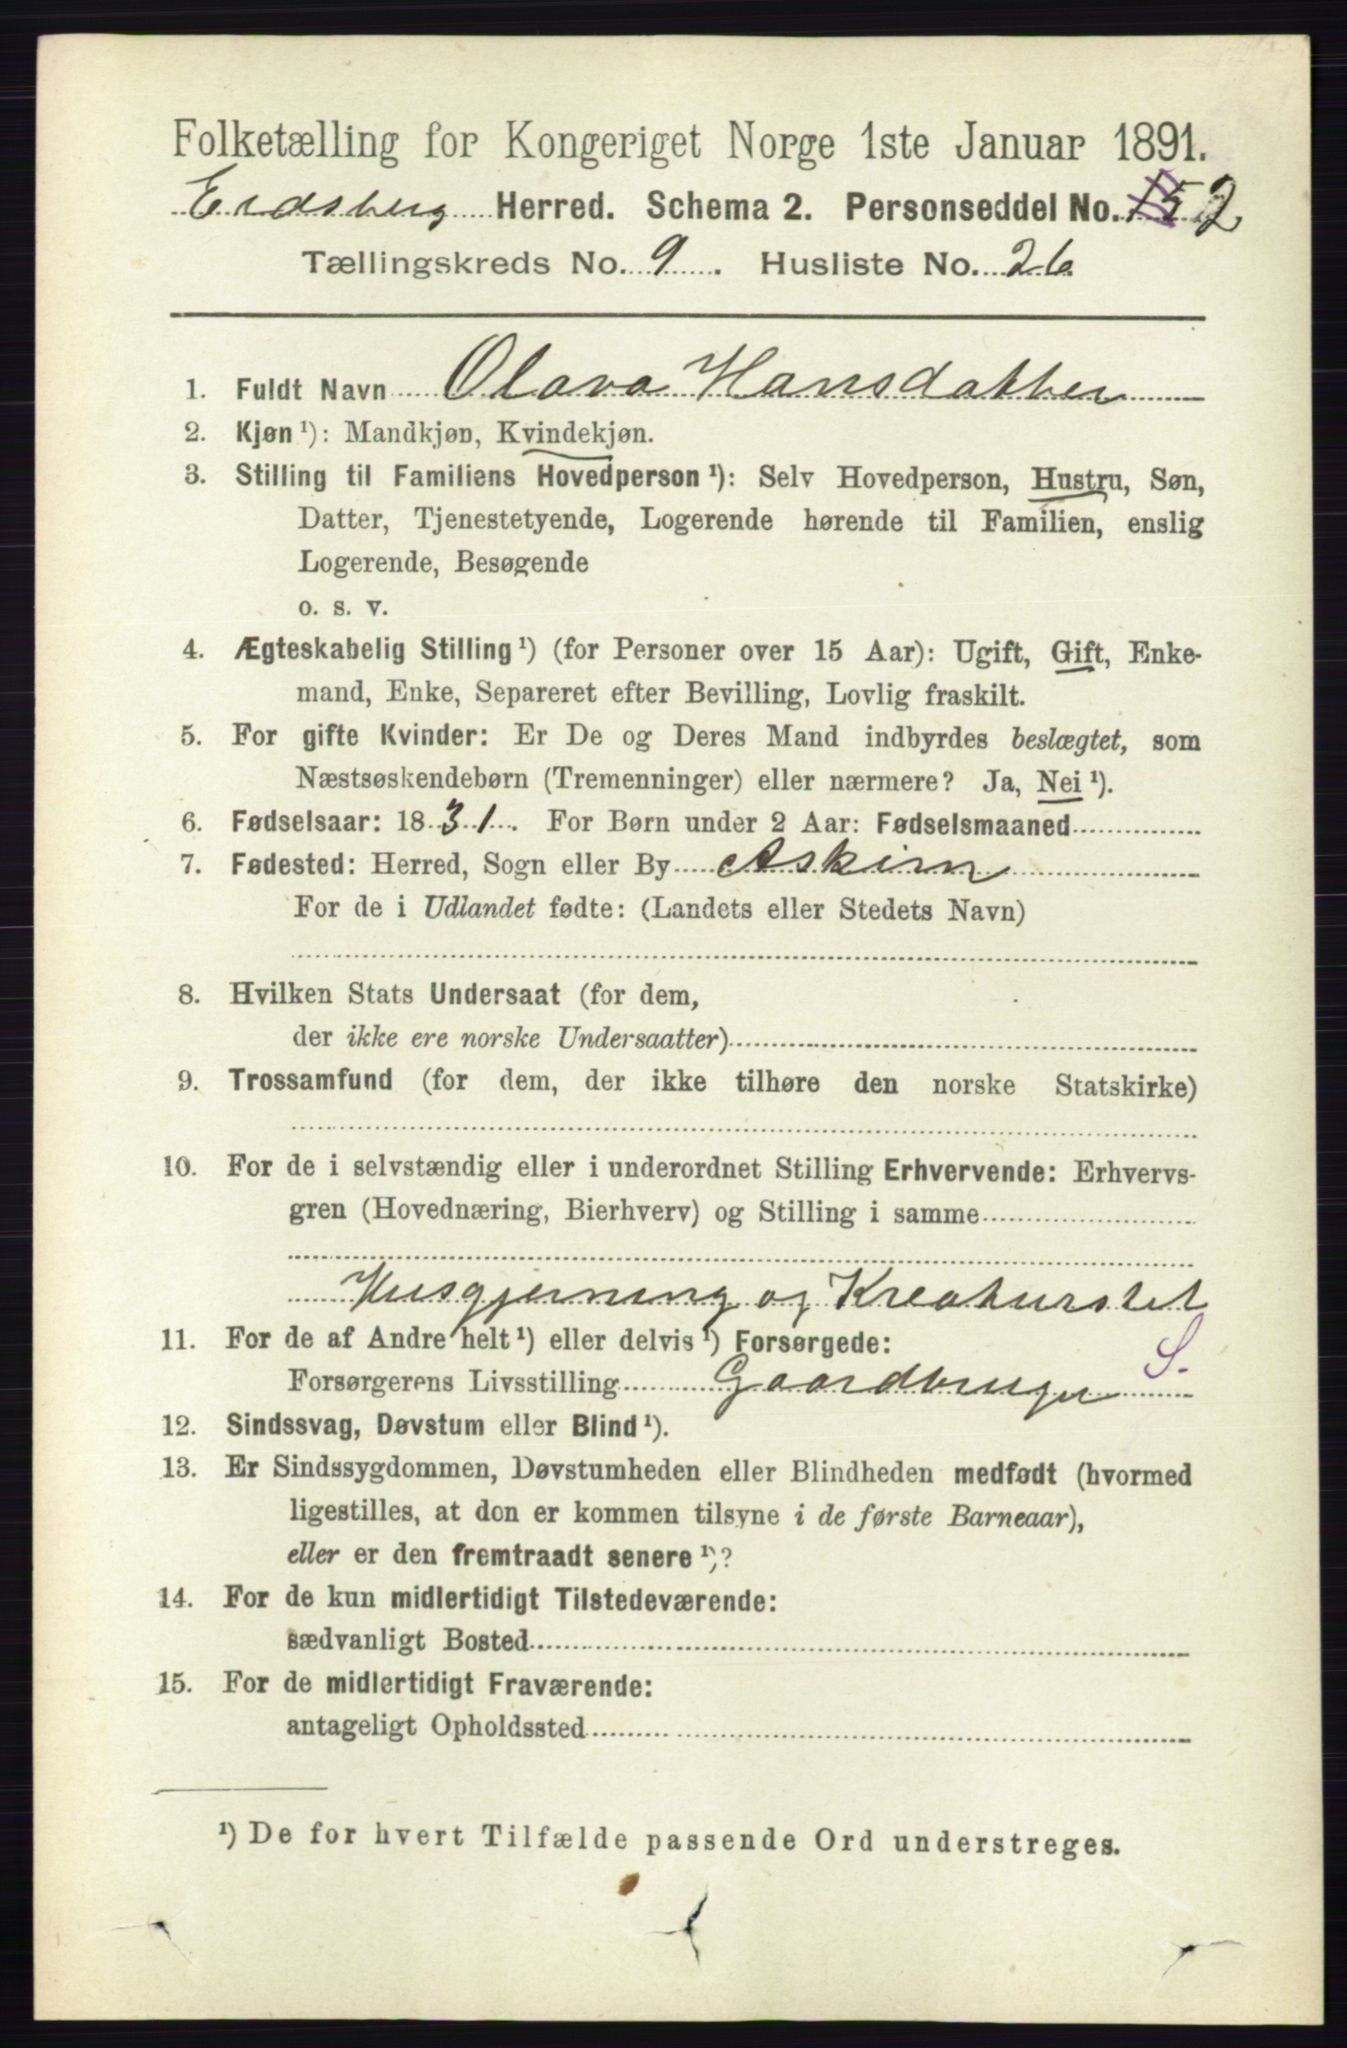 Folketælling for Kongeriget Norge 1ste Januar 1891.
Eidsberg Herred. Schema 2. Personseddel No. 152
Tællingskreds No. 9. Husliste No. 26
1. Fuldt Navn Olava Hansdatter
2. Kjøn ¹): Mandkjøn, Kvindekjøn.
3. Stilling til Familiens Hovedperson ¹): Selv Hovedperson, Hustru, Søn,
Datter, Tjenestetyende, Logerende hørende til Familien, enslig
Logerende, Besøgende
o. s. v.
4. Ægteskabelig Stilling ¹) (for Personer over 15 Aar): Ugift, Gift, Enke-
mand, Enke, Separeret efter Bevilling, Lovlig fraskilt.
5. For gifte Kvinder: Er De og Deres Mand indbyrdes beslægtet, som
Næstsøskendebørn (Tremenninger) eller nærmere? Ja, Nei ¹).
6. Fødselsaar: 1831. For Børn under 2 Aar: Fødselsmaaned
7. Fødested: Herred, Sogn eller By Askim
For de i Udlandet fødte: (Landets eller Stedets Navn)
8. Hvilken Stats Undersaat (for dem,
der ikke ere norske Undersaatter)
9. Trossamfund (for dem, der ikke tilhøre den norske Statskirke)
10. For de i selvstændig eller i underordnet Stilling Erhvervende: Erhvervs-
gren (Hovednæring, Bierhverv) og Stilling i samme
Husgjerning og Kreaturstel
11. For de af Andre helt ¹) eller delvis ¹) Forsørgede:
S.
Forsørgerens Livsstilling Gaardbruger
12. Sindssvag, Døvstum eller Blind ¹).
13. Er Sindssygdommen, Døvstumheden eller Blindheden medfødt (hvormed
ligestilles, at den er kommen tilsyne i de første Barneaar),
eller er den fremtraadt senere ¹)?
14. For de kun midlertidigt Tilstedeværende:
sædvanligt Bosted
15. For de midlertidigt Fraværende:
antageligt Opholdssted
¹) De for hvert Tilfælde passende Ord understreges.